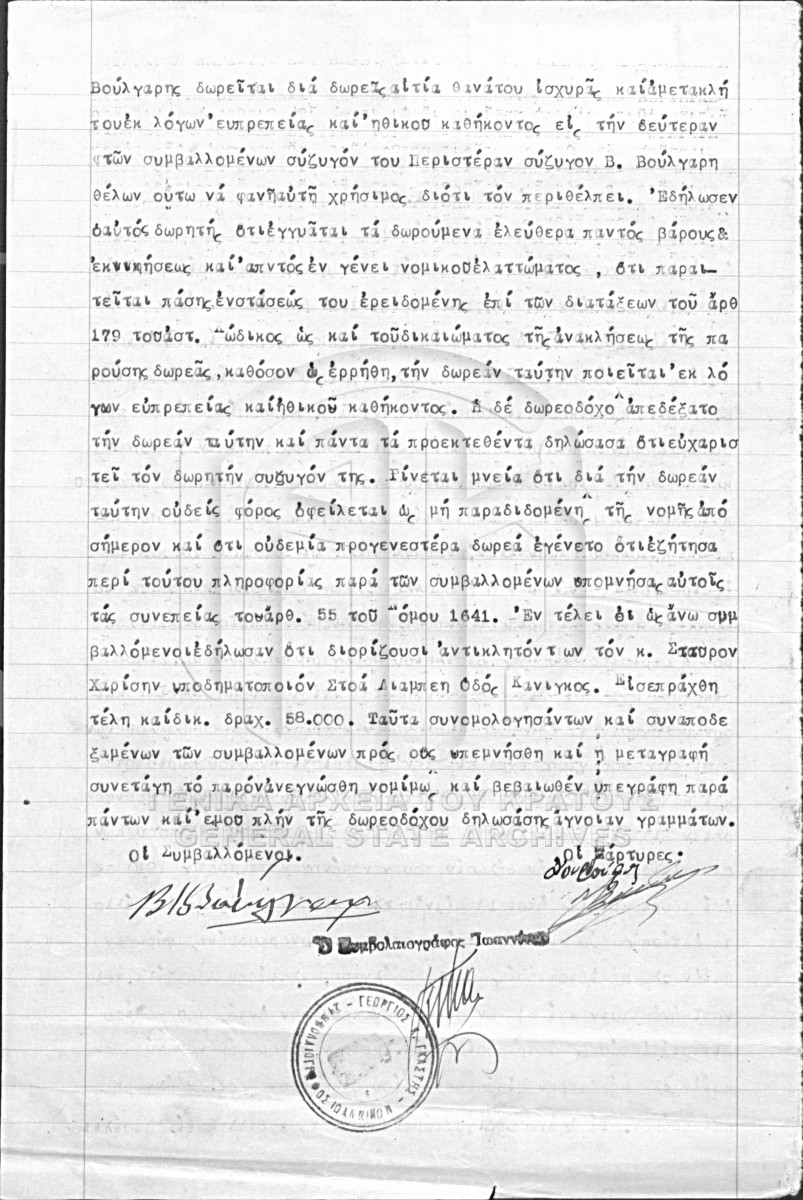 Βούλγαρης δωρεῖται διά δωρεᾶς αἰτία θανάτου ἰσχυρᾶς καί ἀμετακλή
του ἐκ λόγων εὐπρεπείας καί ἠθικοῦ καθήκοντος εἰς τήν δεύτεραν
τῶν συμβαλλομένων σύζυγόν του Περιστέραν σύζυγον Β. Βούλγαρη
θέλων οὕτω νά φανῆ αὐτῆ χρήσιμος διότι τόν περιθέλπει. Ἐδήλωσεν
ὁ αὐτός δωρητής ὅτι ἐγγυᾶται τά δωρούμενα ἐλεύθερα παντός βάρους &
ἐκνικήσεως καί ἀπντός ἐν γένει νομικοῦ ἐλαττώματος , ὅτι παραι-
τεῖται πάσης ἐνστάσεώς του ἐρειδομένης ἐπί τῶν διατάξεων τοῦ ἄρθ
179 τοῦ ἀστ. Κώδικος ὡς καί τοῦ δικαιώματος τῆς ἀνακλήσεως τῆς πα
ρούσης δωρεᾶς, καθόσον ὡς ἐρρήθη, τήν δωρεάν ταύτην ποιεῖται ἐκ λό
γων εὐπρεπείας καί ἠθικοῦ καθήκοντος. Η δέ δωρεοδόχο^ ἀπεδέξατο
τήν δωρεάν ταύτην καί πάντα τά προεκτεθέντα δηλώσασα ὅτι εὐχαρισ
τεῖ τόν δωρητήν συζυγόν της. Γίνεται μνεία ὅτι διά τήν δωρεάν
ταύτην οὐδείς φόρος ὀφείλεται ὡς μή παραδιδομένη^ τῆς νομῆς ἀπό
σήμερον καί ὅτι οὐδεμία προγενεστέρα δωρεά ἐγένετο ὅτι ἐζήτησα
περί τούτου πληροφορίας παρά τῶν συμβαλλομένων ὑπομνήσας αὐτοῖς
τάς συνεπείας τοῦ ἀρθ. 55 τοῦ Νόμου 1641. Ἐν τέλει οἱ ὡς ἄνω συμ
βαλλόμενοι ἐδήλωσαν ὅτι διορίζουσι ἀντικλητόν των τόν κ. Σταῦρον
Χαρίσην ὑποδηματοποιόν Στοά Λιαμπεη Ὁδός Κανιγκος. Εἰσεπράχθη
τέλη καί δικ. δραχ. 58.000. Ταῦτα συνομολογησάντων καί συναποδε
ξαμένων τῶν συμβαλλομένων πρός οὕς ὑπεμνήσθη καί ἡ μεταγραφή
συνετάγη τό παρόν ἀνεγνώσθη νομίμω^ καί βεβαιωθέν ὑπεγράφη παρά
πάντων καί ἐμοῦ πλήν τῆς δωρεοδόχου δηλωσάσης ἄγνοιαν γραμμάτων.
ΓΕΝΙΚΑ ΑΡΧΕΙΑ ΤΟΥ ΚΡΑΤΟΥΣ
GENERAL STATE ARCHIVES
Οἱ Συμβαλλόμενοι. Οἱ Μάρτυρες:
Ὁ Συμβολαιογράφος Ἰωαννίνων
ΓΕΩΡΓΙΟΣ
ΙΩΑΝΝΙΝΩΝ